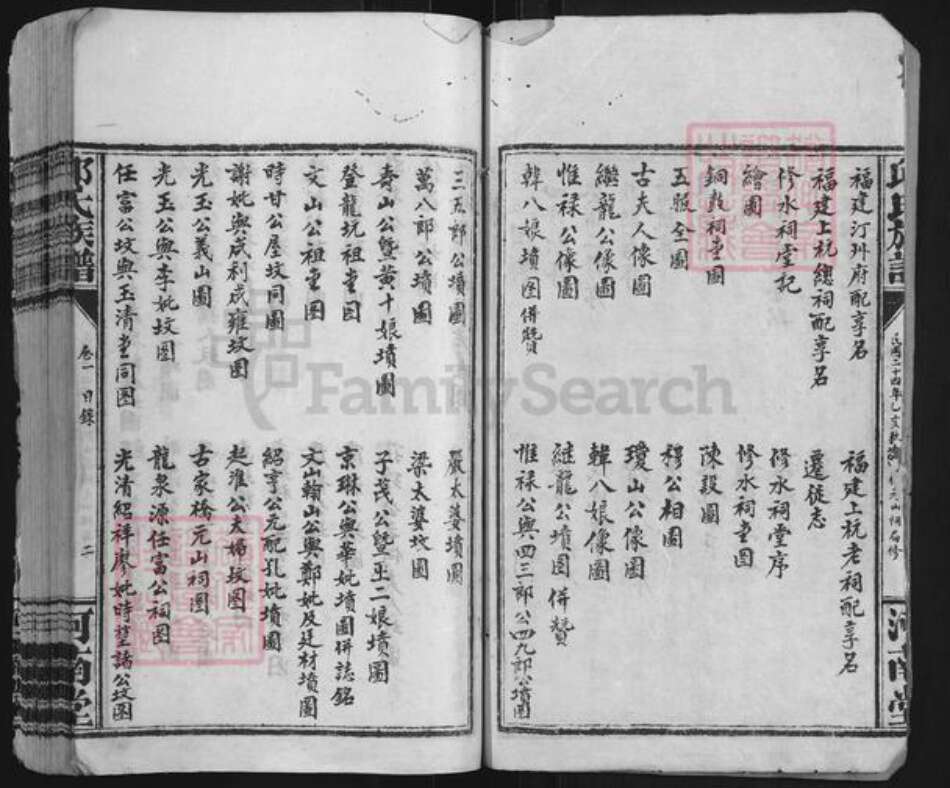 邱氏族譜
民國二十四年乙亥秋
河南堂
福建汀州府配享名
福建上杭老祠配享名
福建上杭總祠配享名
遷徙志
修水祠堂記
修水祠堂序
繪圖
修水祠堂圖
銅鼓祠堂圖
陳設圖
五服全圖
穆公相圖
古夫人像圖
瓊山公像圖
繼龍公像圖
韓八娘像圖
惟祿公像圖
繼龍公墳圖併贊
韓八娘墳圖併贊
惟祿公與四三郎公四九郎公墳圖
三五郎公墳圖
嚴太婆墳圖
萬八郎公墳圖
梁太婆坟圖
壽山公暨黃十娘墳圖
子茂公暨巫二娘墳圖
登龍坑祖堂圖
京琳公與華妣墳圖併誌銘
文山公祖堂圖
文山翰山公與鄭妣及廷材墳圖
時甘公屋坟同圖
紹亨公元配孔妣墳圖
謝妣與成利成雍坟圖
起淮公夫婦坟圖
光玉公義山圖
古家橋元山祠圖
光玉公與李妣坟圖
龍泉源任富公祠圖
任富公坟與玉清堂同圖
光清紹祥廖妣時瑩諸公坟圖
邱氏族譜
卷一 目錄
二
河南堂
FamilySearch